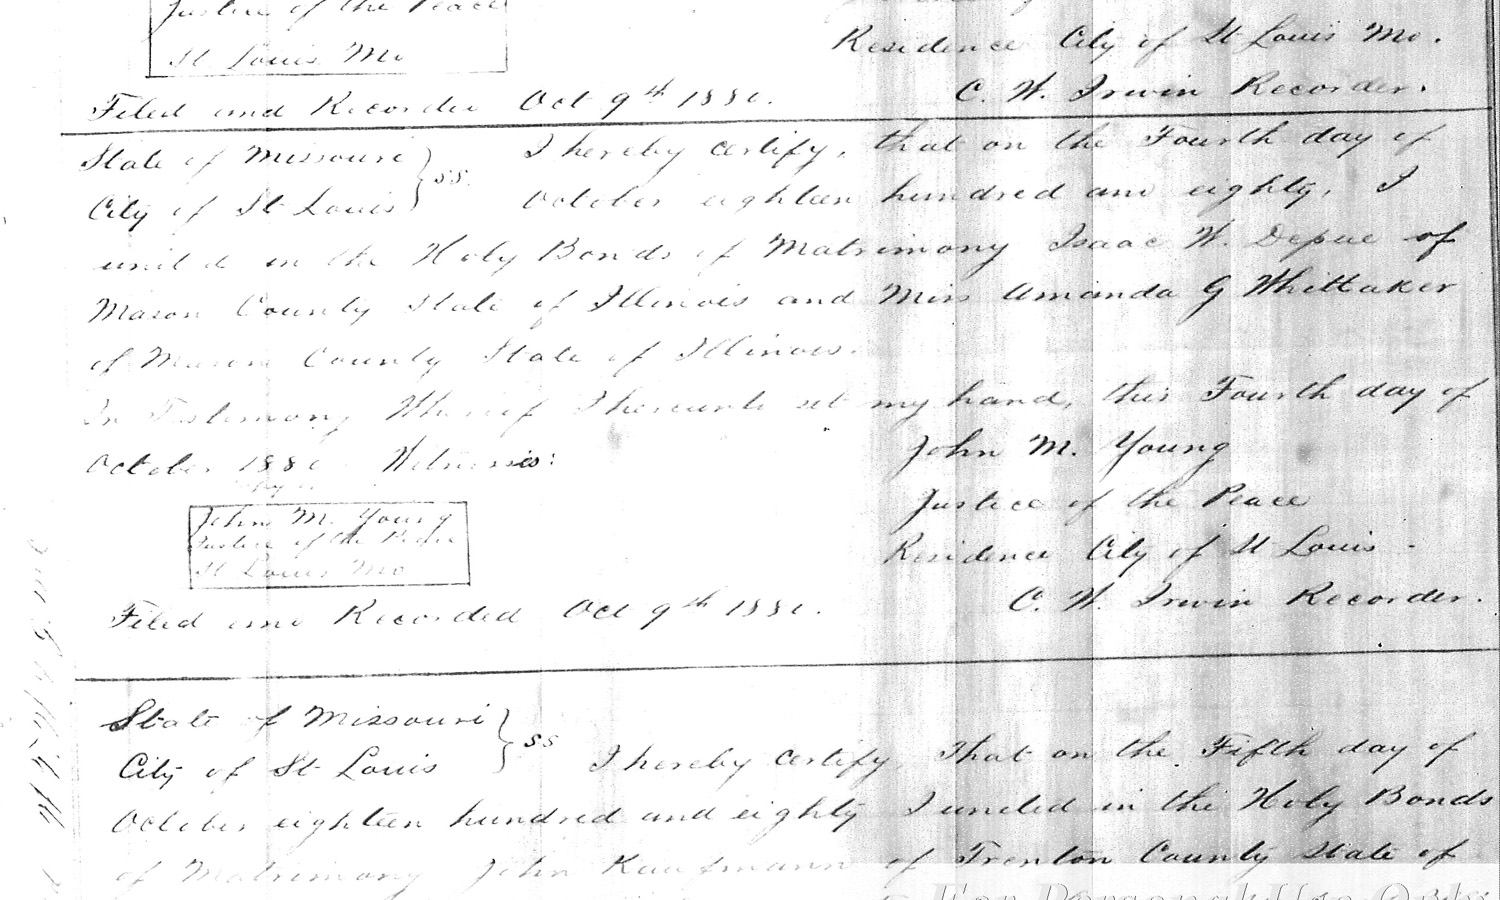 Justice of the Peace
St Louis Mo
Residence City of St Louis Mo.
C. W. Irwin Recorder.
Filed and Recorded Oct 9th 1880.
State of Missouri } ss. I hereby certify, that on the Fourth day of
City of St Louis October eighteen hundred and eighty, I
united in the Holy Bonds of Matrimony Isaac W. Depue of
Mason County State of Illinois and Miss Amanda G Whittaker
of Mason County State of Illinois.
In Testimony Whereof I hereunto set my hand, this Fourth day of
October 1880 Witnesses:
John M. Young
Justice of the Peace
Residence City of St Louis
John M. Young
Justice of the Peace
St Louis Mo
C. W. Irwin Recorder.
Filed and Recorded Oct 9th 1880.
State of Missouri } ss
City of St Louis I hereby certify, That on the Fifth day of
October eighteen hundred and eighty I united in the Holy Bonds
of Matrimony John Kaufmann of Trenton County State of
For Personal Use Only